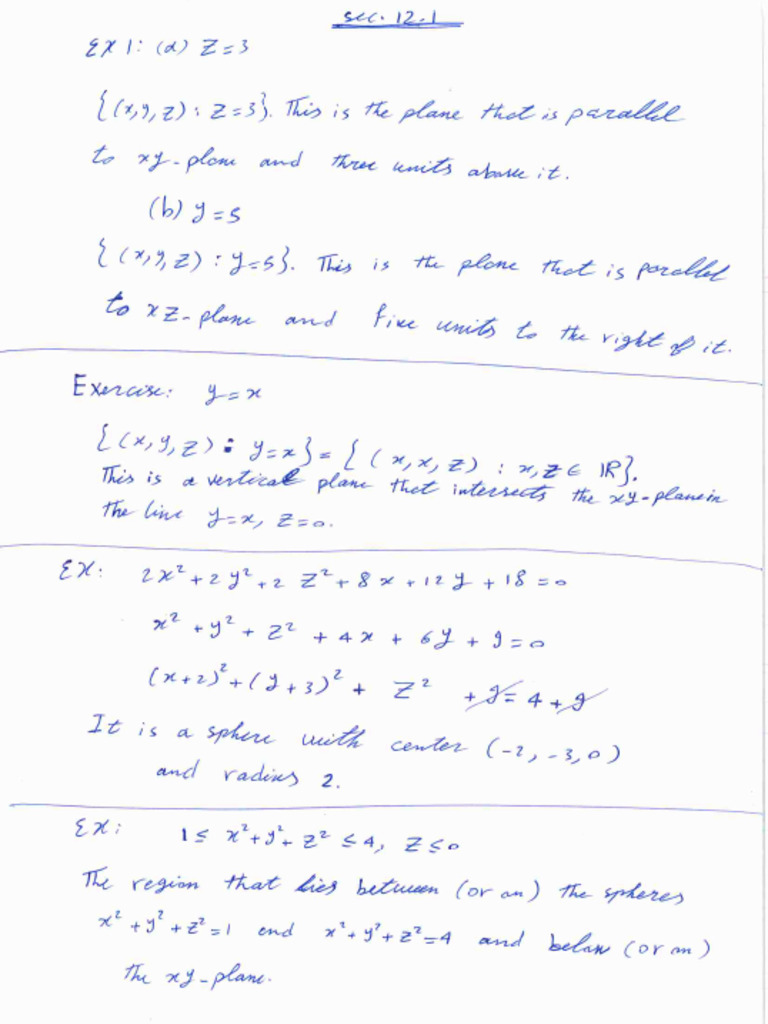 sec. 12.1
EX 1: (a) z=3
{(x,y,z): z=3}. This is the plane that is parallel
to xy-plane and three units above it.
(b) y=5
{(x,y,z): y=5}. This is the plane that is parallel
to xz-plane and five units to the right of it.
Exercise: y=x
{(x,y,z): y=x} = {(x,x,z): x,z∈ℝ}.
This is a vertical plane that intersects the xy-plane in
the line y=x, z=0.
EX: 2x²+2y²+2z²+8x+12y+18=0
x²+y²+z²+4x+6y+9=0
(x+2)²+(y+3)²+z²+9=4+9
It is a sphere with center (-2,-3,0)
and radius 2.
EX: 1≤x²+y²+z²≤4, z≤0
The region that lies between (or on) the spheres
x²+y²+z²=1 and x²+y²+z²=4 and below (or on)
the xy-plane.